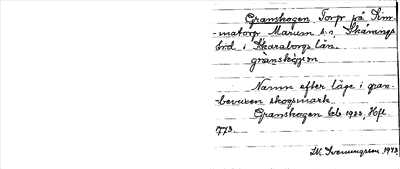 Granskogen, Torp på Sim-
matorp Marum s:n, Skånings
hd i Skaraborgs län.
grànskógen
Namn efter läge i gran-
bevuxen skogsmark.
Granskogen Eeb 1933, Hfl
773.
M Svenningsson 1973